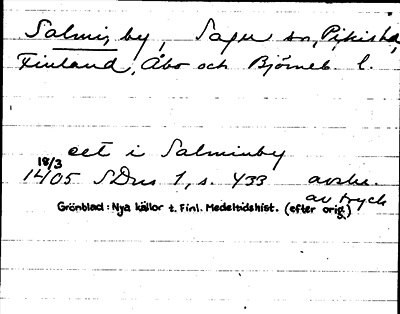 Salmi, by, Sagu sn, Pikis hd,
Finland, Åbo och Björneb. l.
eet i Salminby
18/3
1405 SDns 1, s. 433 avskr.
av tryck
Grönblad: Nya källor t. Finl. Medeltidshist. (efter orig.)